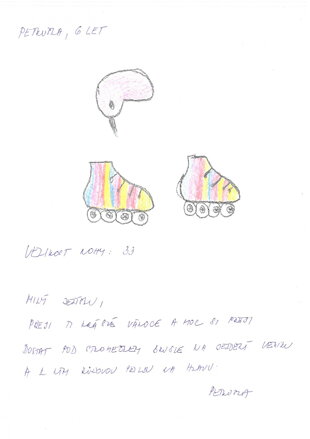 PETRUŠKA, 6 LET
VELIKOST NOHY: 33
MILÝ JEŽÍŠKU,
PŘEJI TI KRÁSNÉ VÁNOCE A MOC SI PŘEJI
DOSTAT POD STROMEČKEM BRUSLE NA
A K NIM RŮŽOVOU HELMU NA HLAVU.
PETRUŠKA